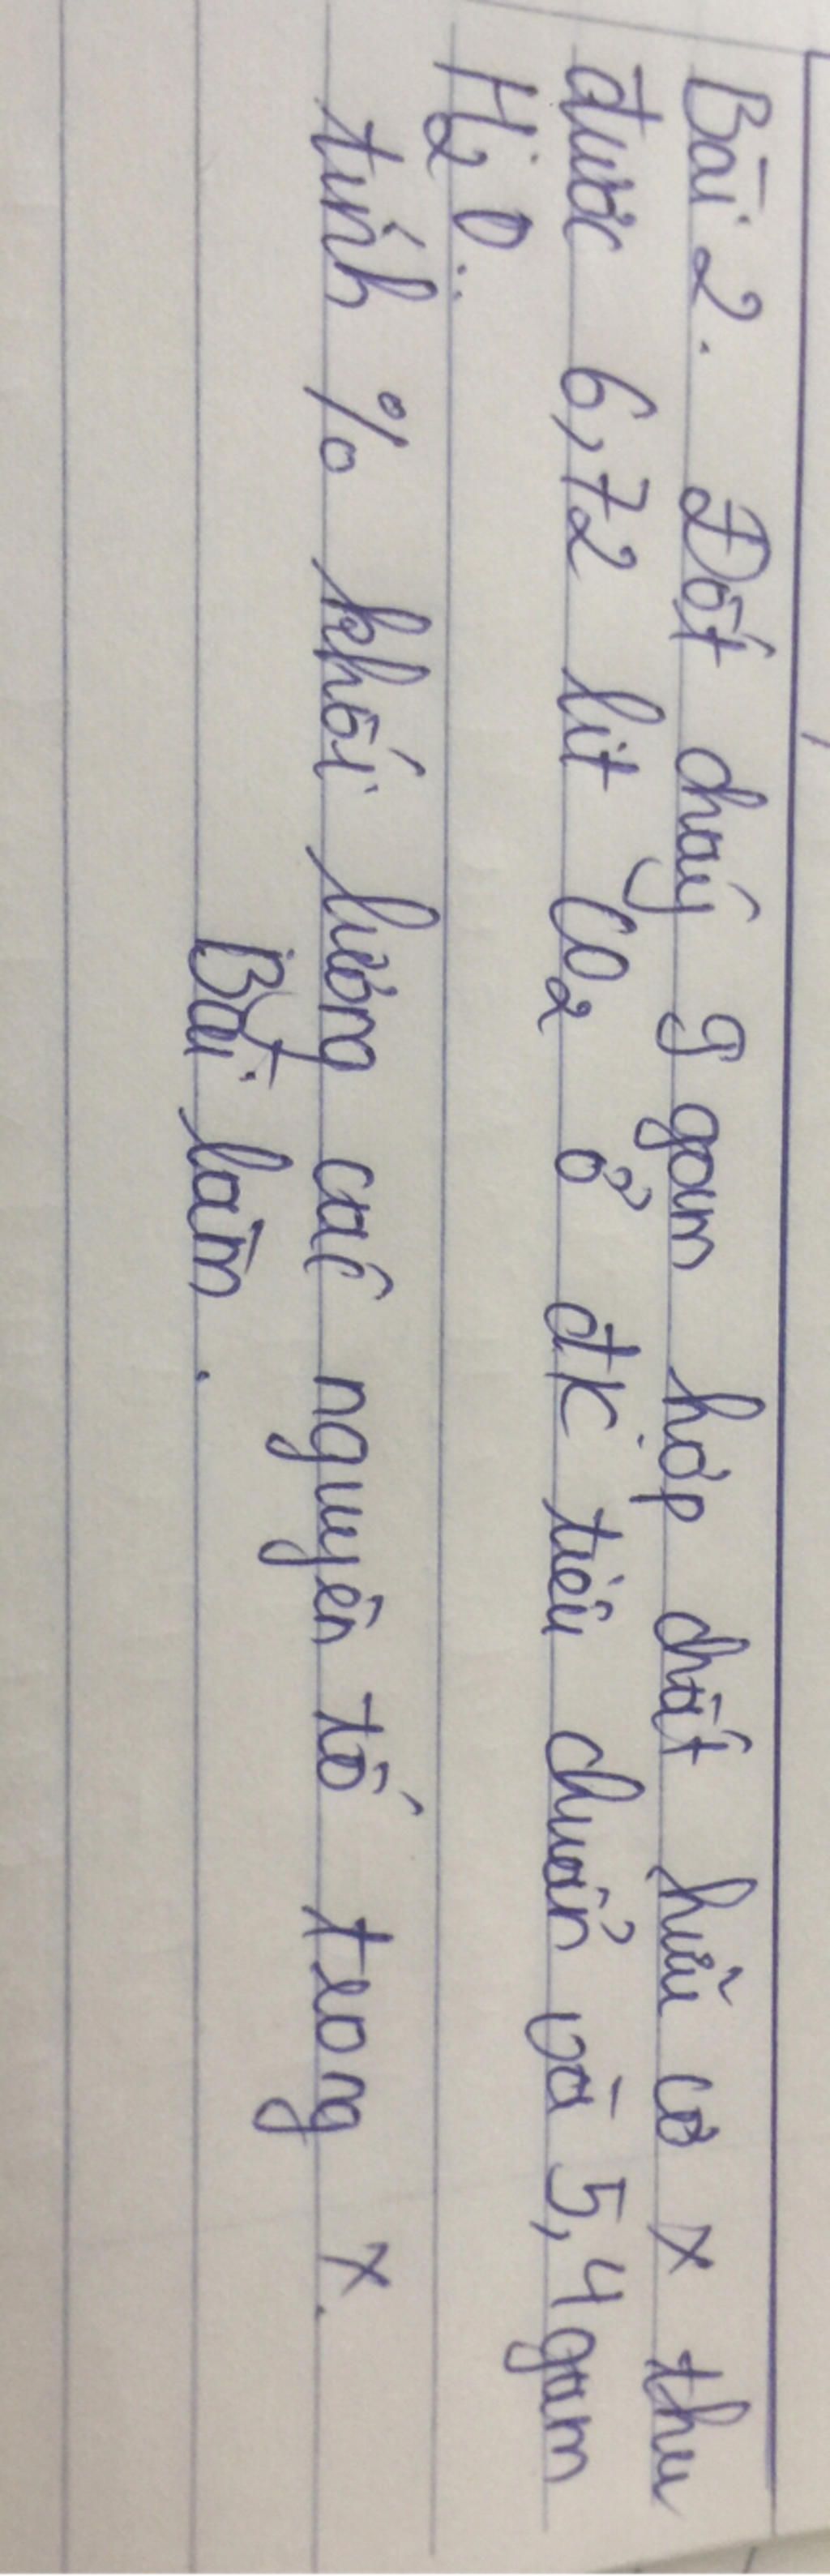 Bài 2. Đốt cháy 9 gam hợp chất hữu cơ x thu
được 6,72 lít CO2 ở đk tiêu chuẩn và 5,4 gam
H2O.
tính % khối lượng các nguyên tố trong x.
Bài làm.